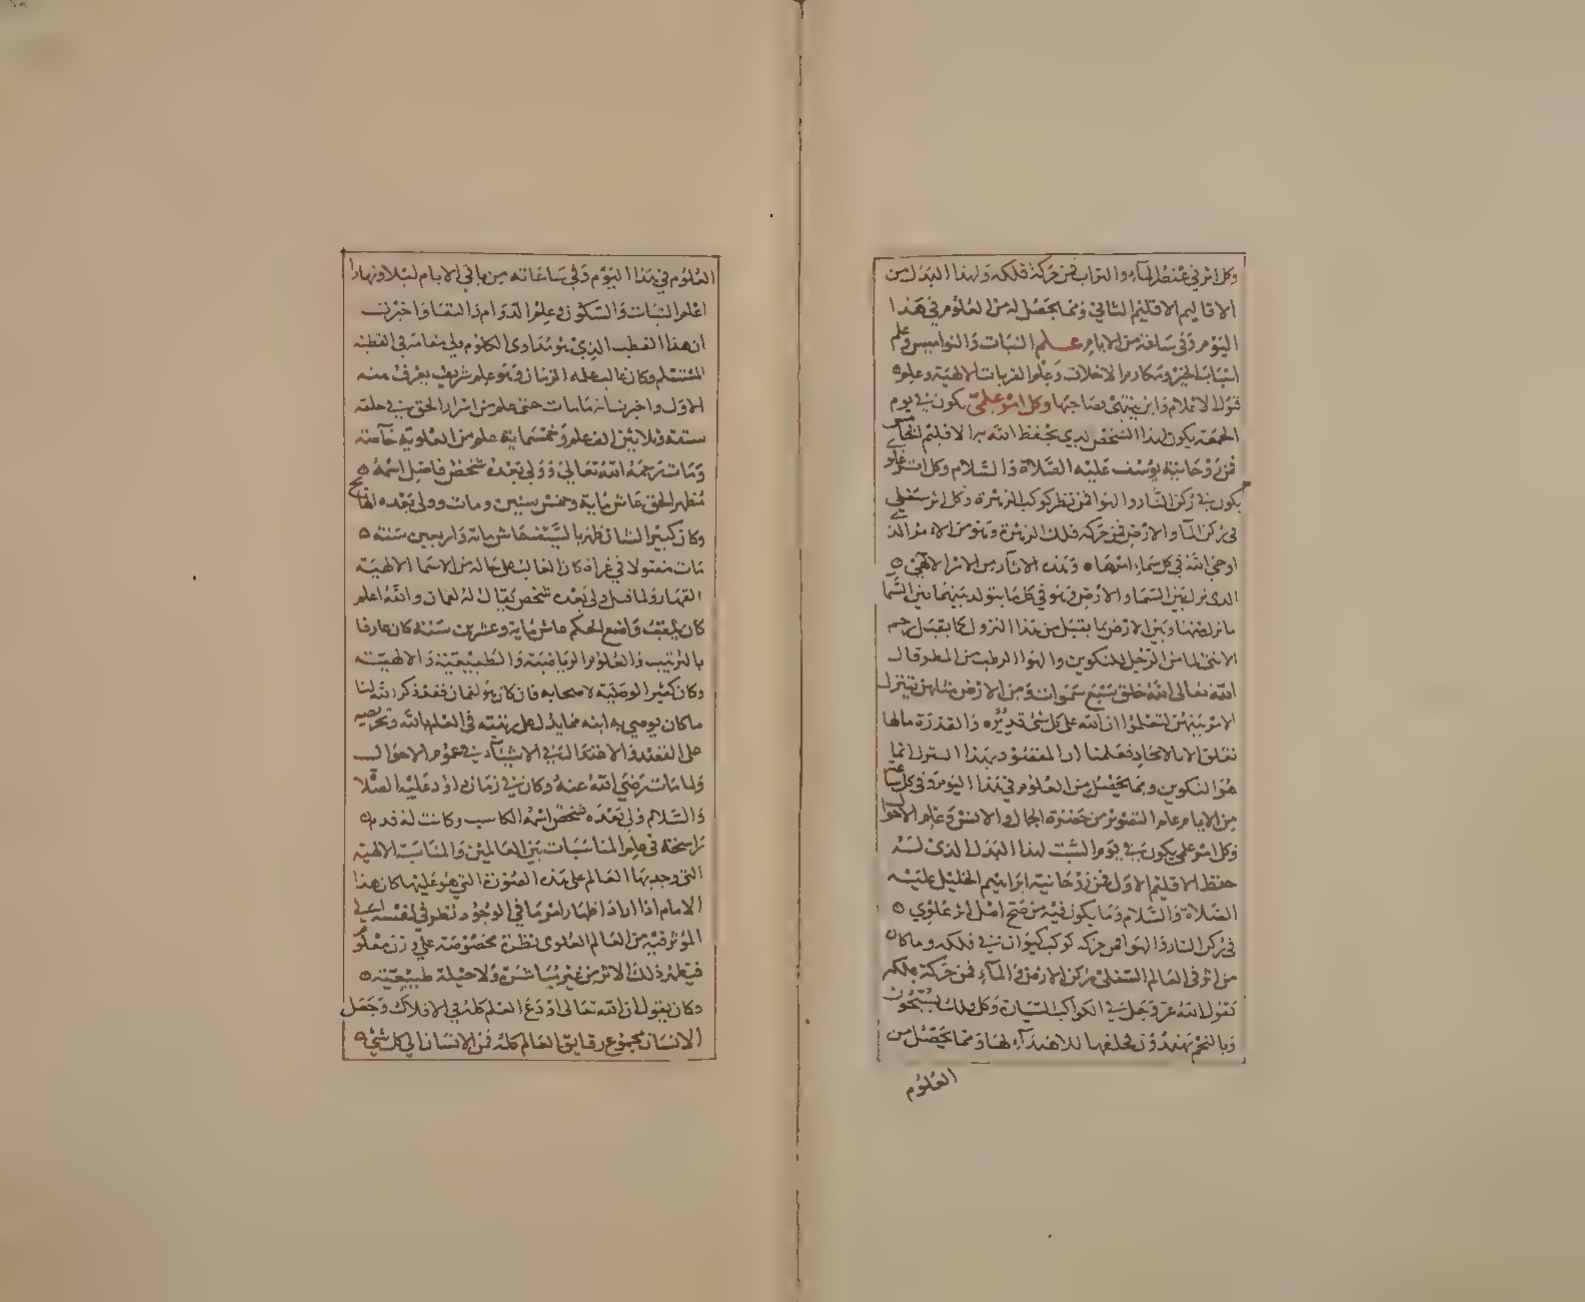 وكل اثر في عنصر الماء والتراب فمن حركة فلكه ولهذا البدل من
الاقاليم الاقليم الثاني ومما يحصل له من العلوم في هذا
اليوم وفي ساعته من الايام علم النبات والنواميس وعلم
اسباب الخير ومكارم الاخلاق وعلم القربات الالهية وعلم
قبول الاعمال واين ينتهي بصاحبها وكل امر علمي يكون في يوم
الجمعة يكون لهذا الشخص الذي يحفظ الله به الاقليم الخامس
فمن روحانية يوسف عليه الصلاة والسلام وكل اثر علو
يكون في ركن النار والهوا فمن نظر كوكب الزهرة وكل اثر سفلي
في ركن الماء والارض فمن حركة فلك الزهرة وهو من الامر الذي
اوحى الله في كل سماء امرها وهذه الاثار من الامر الالهي
الذي نزل بين السماء والارض وهو في كل ما يتولد بينهما بين السما
ما نزل منها وبين الارض بما تقبل من هذا النزول كما يقبل رحم
الانثى الماء من الرجل للتكوين والهوا الرطب من المطر قال
الله تعالى الله خلق سبع سموات ومن الارض مثلهن يتنزل
الامر بينهن لتعلموا ان الله على كل شي قدير والقدرة مالها
تعلق الا بالايجاد فعلمنا ان المقصود بهذا التنزل انما
هو التكوين ومما يحصل من العلوم في هذا اليوم وفي ساعته
من الايام علم التصوير من حضرة الجمال والانس وعلم الاحوال
وكل امر علمي يكون في يوم السبت لهذا البدل الذي له
حفظ الاقليم الاول فمن روحانية ابراهيم الخليل عليه
الصلاة والسلام وما يكون فيه من اثر علوي
في ركن النار والهوا فمن حركة كوكب كيوان في فلكه وما كان
من اثر في العالم السفلي ركن الارض والماء فمن حركة فلكه
يقول الله عز وجل في الكواكب السيارة وكل في فلك يسبحون
وبالنجم هم يهتدون فخلقها للاهتداء بها ومما يحصل من
العلوم
العلوم في هذا اليوم وفي ساعاته من باقي الايام ليلا ونهارا
علم الثبات والسكون وعلم الدوام والبقا واخبرت
ان هذا القطب الذي هو مداوي الكلوم ولي مقامه في القطبه
المستسلم وكان غالب علمه الزمان وهو علم شريف يعرف منه
الاول واخبرت انه ما مات حتى علم من اسرار الحق في خلقه
ستة وثلاثين الف علم وخمسماية علم من العلوية خاصة
ومات رحمه الله تعالى وولي بعده شخص فاضل اسمه
مظهر الحق عاش ماية وخمسين سنة ومات وولي بعده الهايج
وكان كبير الشان ظهر بالسيف عاش ماية واربعين سنة
مات مقتولا في غزاة كان الغالب على حاله من الاسما الالهية
القهار ولما قتل ولي بعده شخص يقال له لقمان والله اعلم
كان يلقب واضع الحكم عاش ماية وعشرين سنة كان عارفا
بالترتيب والعلوم الرياضية والطبيعية والالهية
وكان كثير الوصية لاصحابه فان كان هو لقمان فقد ذكر الله لنا
ما كان يوصي به ابنه مما يدل على رتبته في العلم بالله وتحريضه
على القصد والاعتدال في الاشياء في عموم الاحوال
ولما مات رضي الله عنه وكان في زمان داود عليه الصلا
والسلام ولي بعده شخص اسمه الكاسب وكانت له قدم
راسخة في علم المناسبات بين العالمين والمناسبة الالهية
التي وجد بها العالم على هذه الصورة التي هو عليها كان هذا
الامام اذا اراد اظهار امر ما في الوجود نظر في نفسه الى
المؤثر فيه من العالم العلوي نظرة مخصوصة على وزن معلوم
فيظهر ذلك الاثر من غير مباشرة ولا حيلة طبيعية
وكان يقول ان الله تعالى اودع العلم كله في الافلاك وجعل
الانسان مجموع رقايق العالم كله فمن الانسان الى كل شي